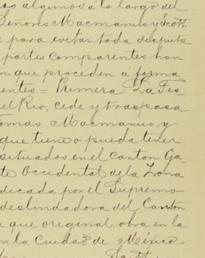 os algunos a lo largo del
Señores Macmanus y
para evitar toda disputa
portes comparentes han
n que proceden a forma
entes = Primera La Tes
el Rio, cede y traspasa
omas Macmanus y
que tiene o pueda tener
situados en el canton Ga
te Occidental de la Zona
decada por el Supremo
deslindadora del Canton
a que original obra en la
n la Ciudad de México